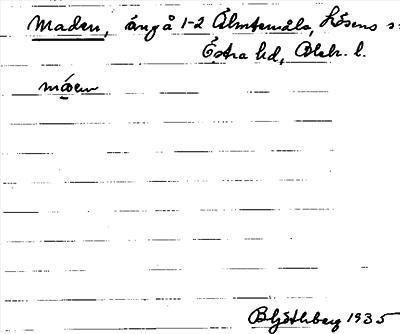 Maden, äng å 1-2 Älmtamåla, Lösens s
Östra hd, Blek. l.
måen
B Hjöthberg 1935